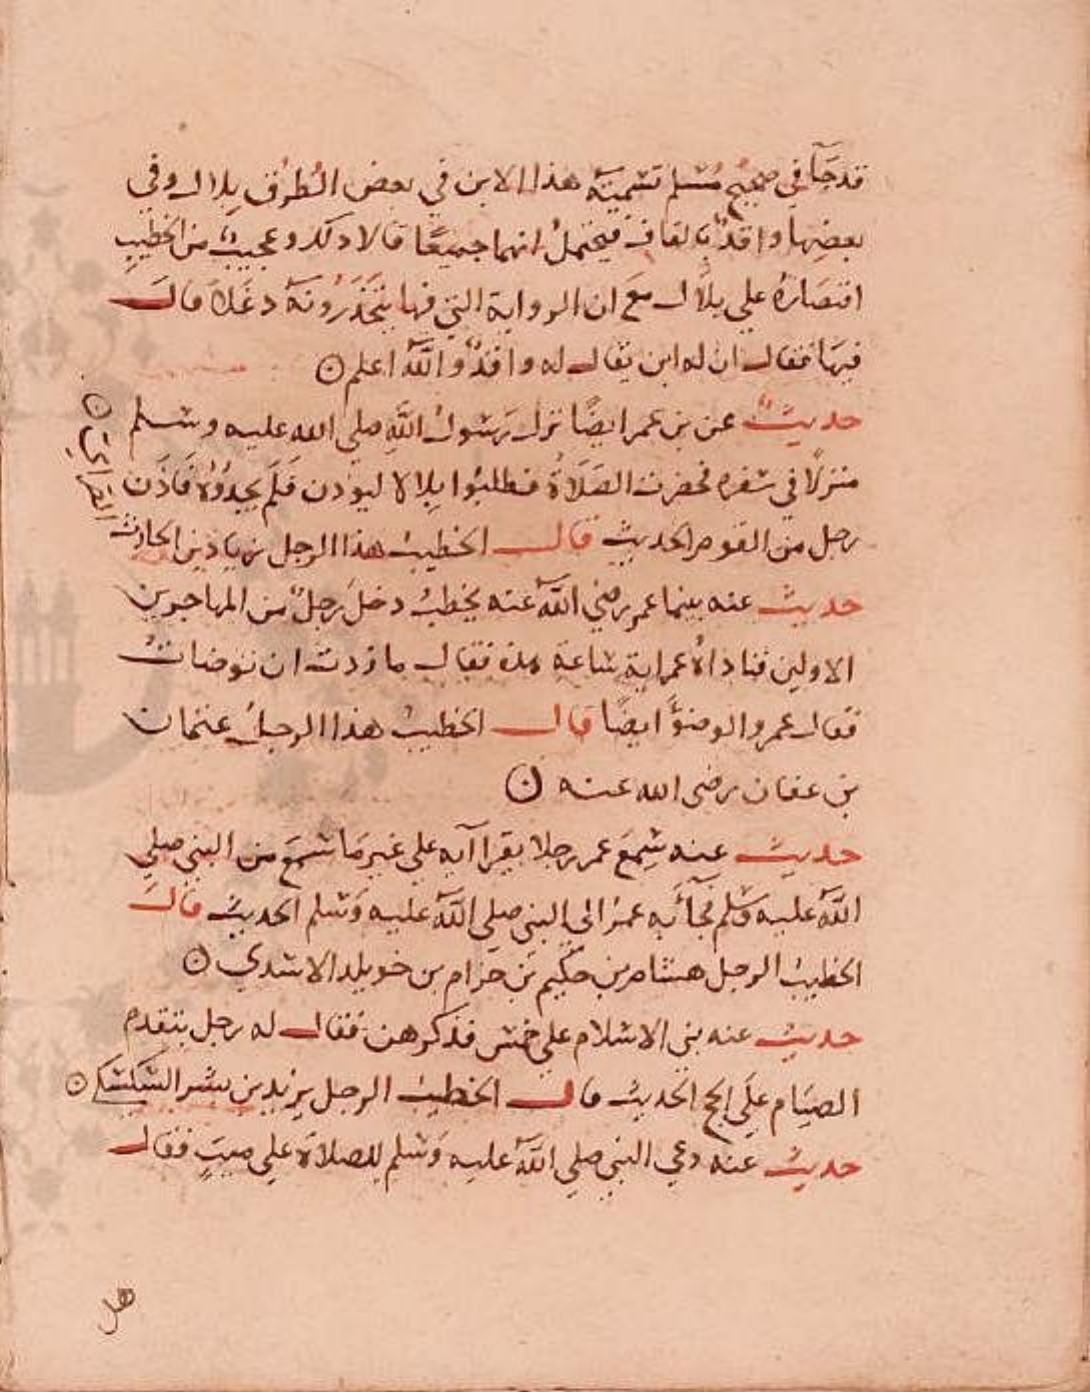 قد جآ في صحيح مسلم تسمية هذا الابن في بعض الطرق بلال وفي
بعضها واقد بالقاف فيحتمل انهما جميعًا قالا ذلك وعجيب من الخطيب
اقتصاره علي بلال مع ان الرواية التي فيها يتخذونه دغلا قال
فيها فقال ان له ابن يقال له واقد والله اعلم
حديث عن بن عمر ايضًا نزل رسول الله صلي الله عليه وسلم
منزلا في سفره فحضرت الصلاة فطلبوا بلالا ليوذن فلم يجدوه فاذن
رجل من القوم الحديث قال الخطيب هذا الرجل زياد بن الحارث
الصدائي
حديث عنه بينما عمر رضي الله عنه يخطب دخل رجل من المهاجرين
الاولين فناداه عمر اية ساعة هذه فقال ما زدت ان توضات
فقال عمر والوضؤ ايضًا قال الخطيب هذا الرجل عثمان
بن عفان رضي الله عنه
حديث عنه سمع عمر رجلا يقرا آية علي غير ما سمع من النبي صلي
الله عليه وسلم فجآ به عمر الي النبي صلي الله عليه وسلم الحديث قال
الخطيب الرجل هشام بن حكيم بن حزام بن خويلد الاسدي
حديث عنه بني الاسلام علي خمس فذكرهن فقال له رجل يتقدم
الصيام علي الحج الحديث قال الخطيب الرجل يزيد بن بشر السكسكي
حديث عنه دعي النبي صلي الله عليه وسلم للصلاة علي ميت فقال
هل